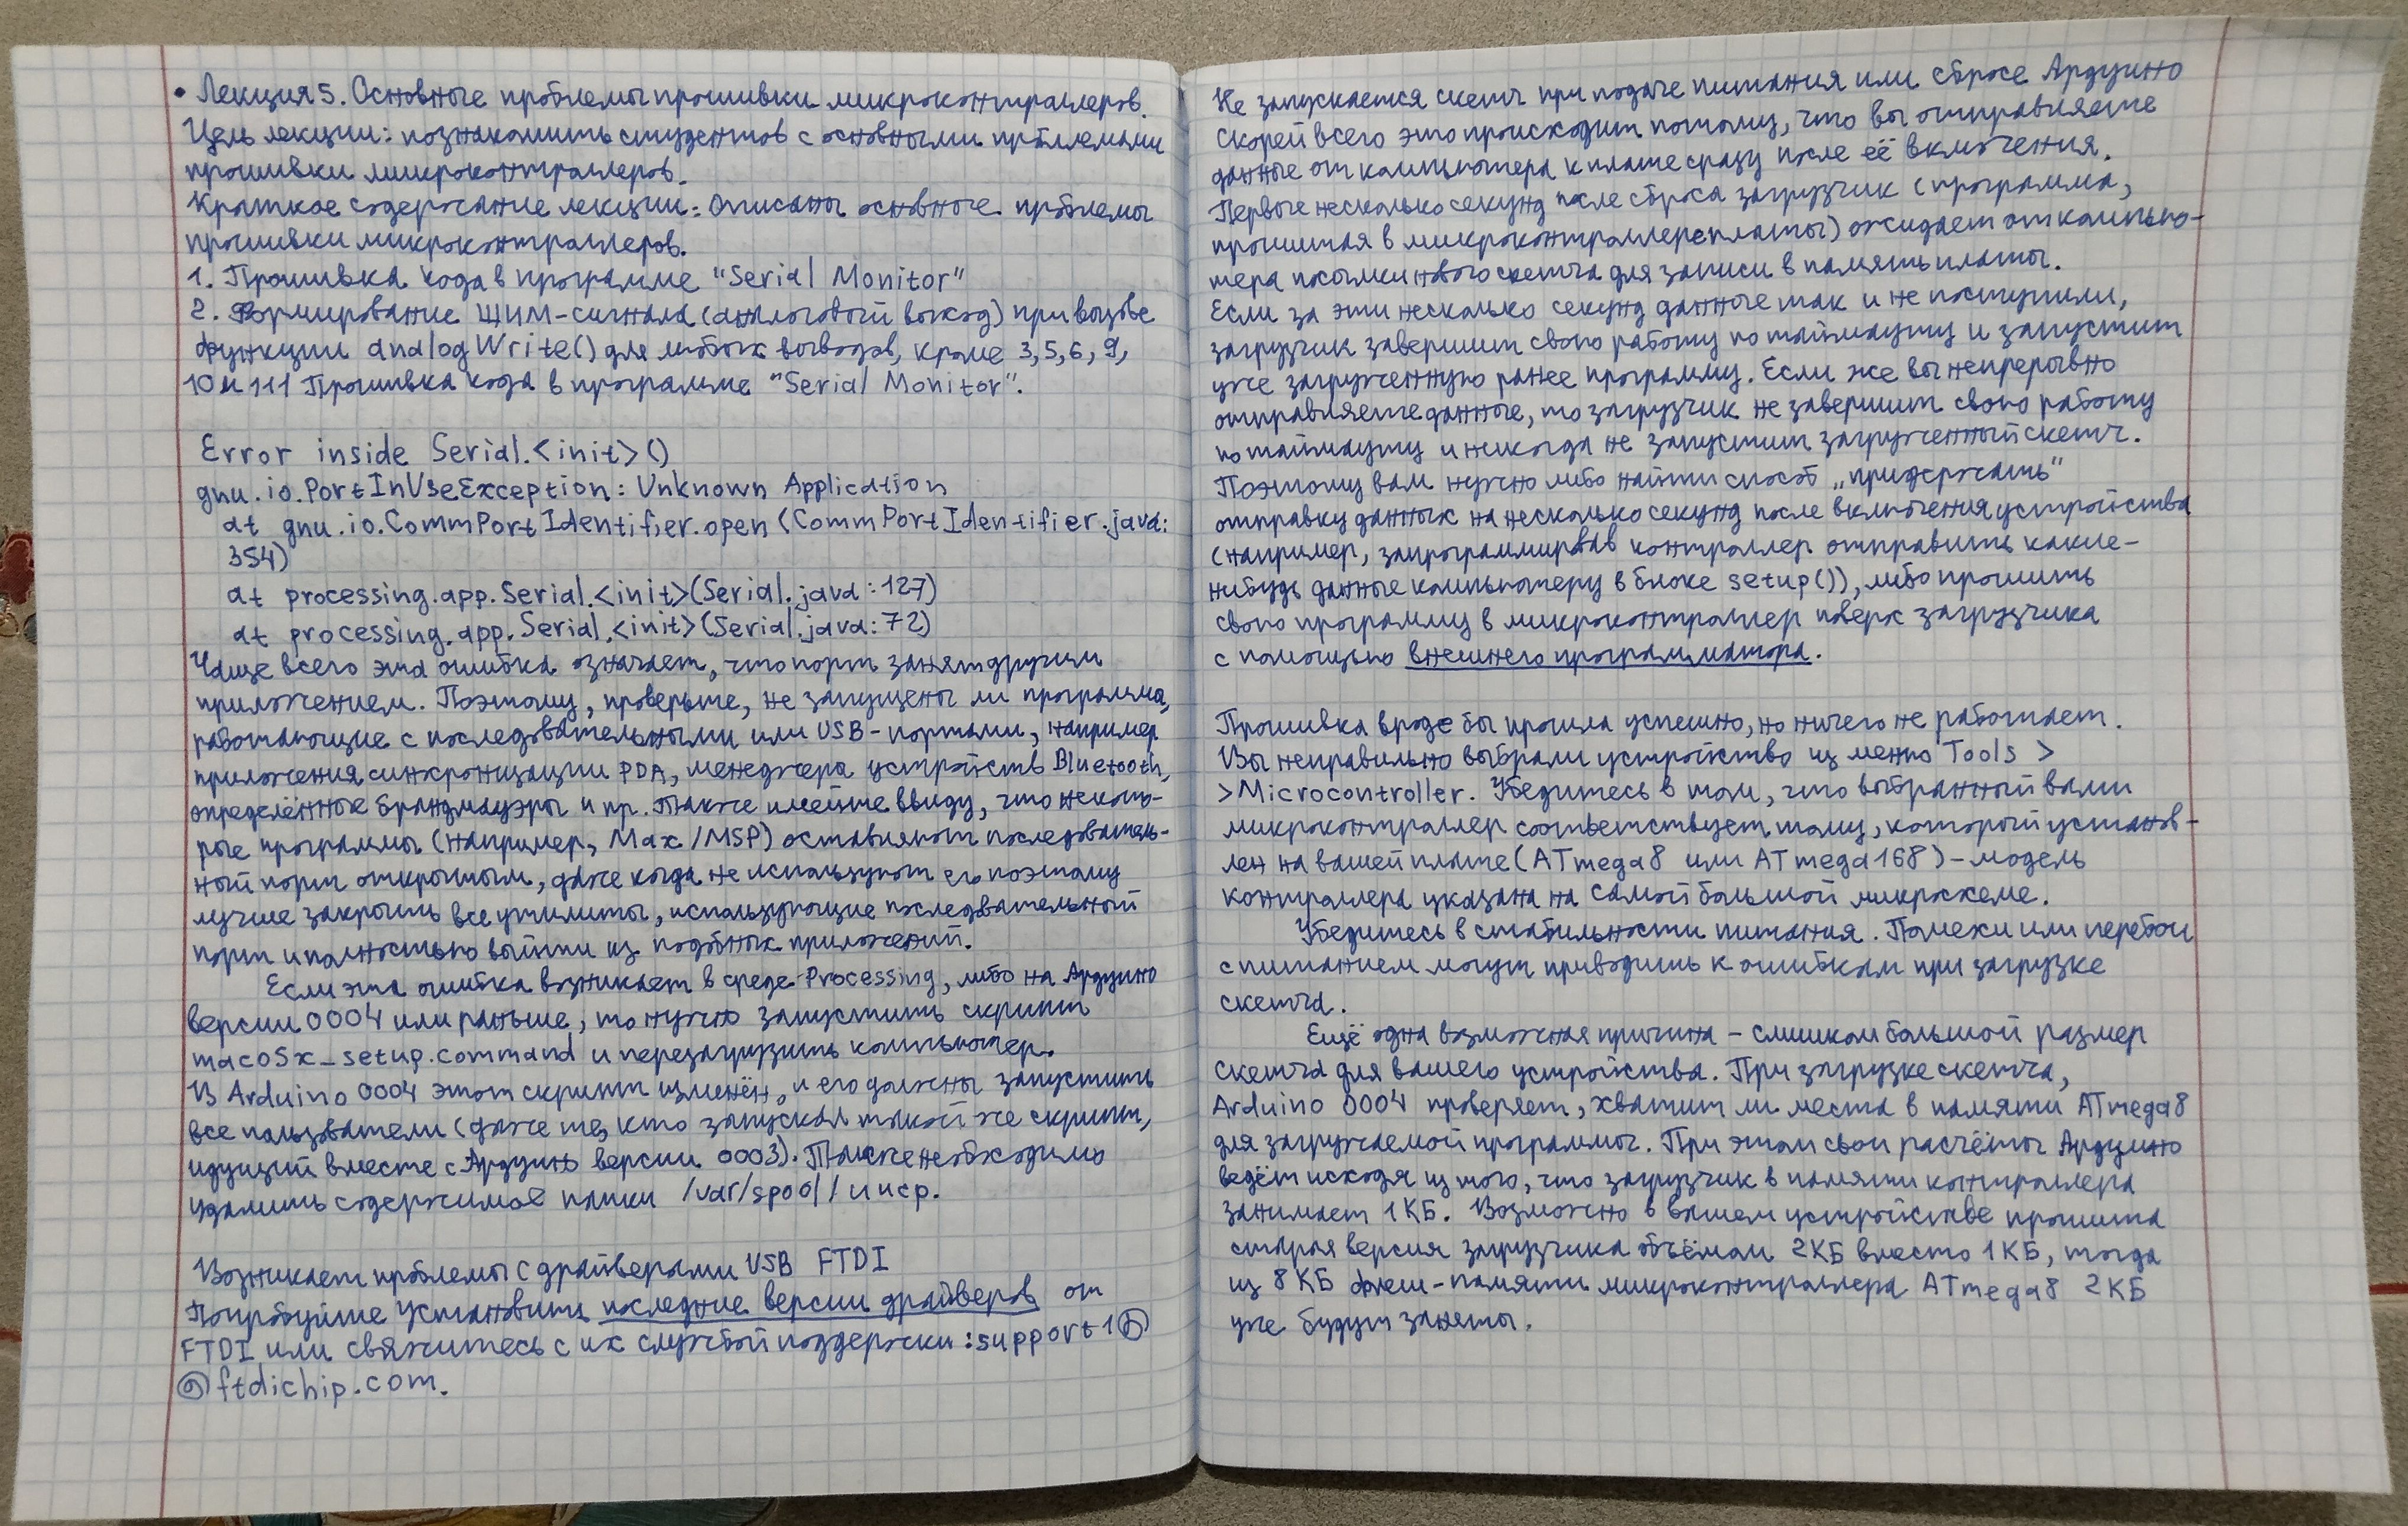 • Лекция 5. Основные проблемы прошивки микроконтроллеров.
Цель лекции: познакомить студентов с основными проблемами
прошивки микроконтроллеров.
Краткое содержание лекции: Описаны основные проблемы
прошивки микроконтроллеров.
1. Прошивка кода в программе "Serial Monitor"
2. Формирование ШИМ-сигнала (аналоговый выход) при вызове
функции analogWrite() для любых выводов, кроме 3, 5, 6, 9,
10 и 111 Прошивка кода в программе "Serial Monitor".
Error inside Serial.<init>()
gnu.io.PortInUseException: Unknown Application
at gnu.io.CommPortIdentifier.open (CommPortIdentifier.java:
354)
at processing.app.Serial.<init>(Serial.java:127)
at processing.app.Serial.<init>(Serial.java:72)
Чаще всего эта ошибка означает, что порт занят другим
приложением. Поэтому, проверьте, не запущены ли программа,
работающие с последовательными или USB-портами, например
приложения синхронизации PDA, менеджера устройств Bluetooth,
определённые брандмауэры и пр. Также имейте ввиду, что некото-
рые программы (например, Max/MSP) оставляют последователь-
ный порт открытым, даже когда не используют его поэтому
лучше закрыть все утилиты, использующие последовательный
порт и полностью выйти из подобных приложений.
Если эта ошибка возникает в среде Processing, либо на Ардуино
версии 0004 или раньше, то нужно запустить скрипт
macosx_setup.command и перезагрузить компьютер.
В Arduino 0004 этот скрипт изменён, и его должны запустить
все пользователи (даже те, кто запускал такой же скрипт,
идущий вместе с Ардуино версии 0003). Также необходимо
удалить содержимое папки /var/spool/ uucp.
Возникает проблемы с драйверами USB FTDI
Попробуйте установить последние версии драйверов от
FTDI или свяжитесь с их службой поддержки: support1@
@ftdichip.com.
Не запускается скетч при подаче питания или сбросе Ардуино
Скорей всего это происходит потому, что вы отправляете
данные от компьютера к плате сразу после её включения.
Первые несколько секунд после сброса загрузчик (программа,
прошитая в микроконтроллере платы) ожидает от компью-
тера посылки нового скетча для записи в память платы.
Если за эти несколько секунд данные так и не поступили,
загрузчик завершит свою работу по таймауту и запустит
уже загруженную ранее программу. Если же вы непрерывно
отправляете данные, то загрузчик не завершит свою работу
по таймауту и никогда не запустит загруженный скетч.
Поэтому вам нужно либо найти способ „придержать"
отправку данных на несколько секунд после включения устройства
(например, запрограммировав контроллер отправить какие-
нибудь данные компьютеру в блоке setup()), либо прошить
свою программу в микроконтроллер поверх загрузчика
с помощью внешнего программатора.
Прошивка вроде бы прошла успешно, но ничего не работает.
Вы неправильно выбрали устройство из меню Tools >
> Microcontroller. Убедитесь в том, что выбранный вами
микроконтроллер соответствует тому, который установ-
лен на вашей плате (ATmega8 или ATmega168) – модель
контроллера указана на самой большой микросхеме.
Убедитесь в стабильности питания. Помехи или перебои
с питанием могут приводить к ошибкам при загрузке
скетча.
Ещё одна возможная причина – слишком большой размер
скетча для вашего устройства. При загрузке скетча,
Arduino 0004 проверяет, хватит ли места в памяти ATmega8
для загружаемой программы. При этом свои расчёты Ардуино
ведёт исходя из того, что загрузчик в памяти контроллера
занимает 1КБ. Возможно в вашем устройстве прошита
старая версия загрузчика объёмом 2КБ вместо 1КБ, тогда
из 8КБ флеш-памяти микроконтроллера ATmega8 2КБ
уже будут заняты.